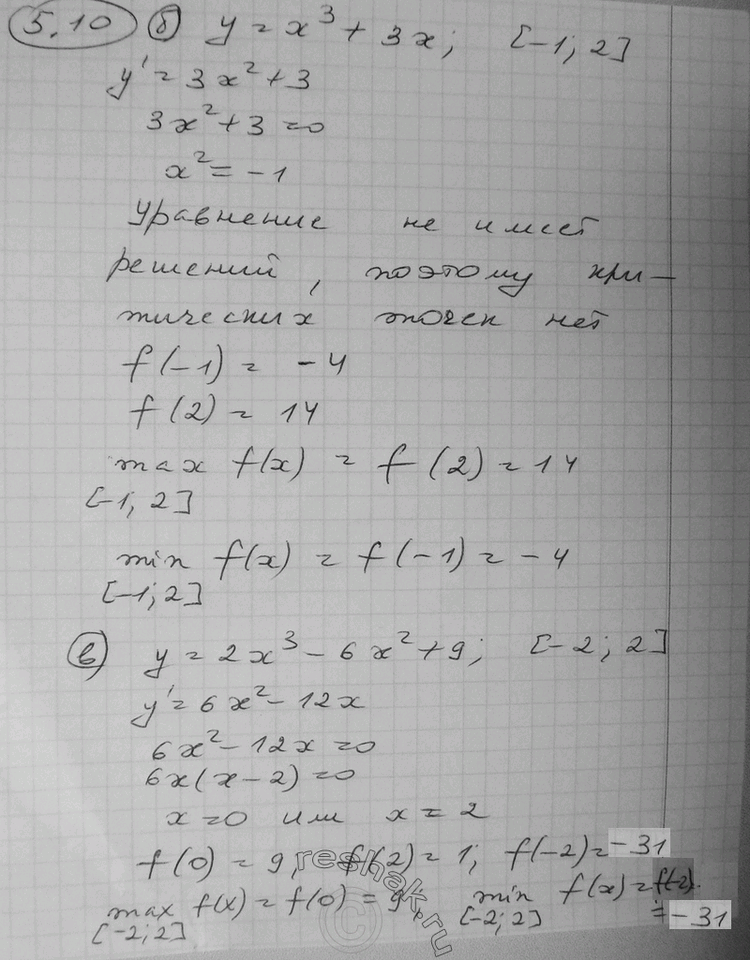 5.10 б) y = x³ + 3x; [-1; 2]
y' = 3x² + 3
3x² + 3 = 0
x² = -1
Уравнение не имеет
решений, поэтому кри-
тических точек нет
f(-1) = -4
f(2) = 14
max f(x) = f(2) = 14
[-1; 2]
min f(x) = f(-1) = -4
[-1; 2]
в) y = 2x³ - 6x² + 9; [-2; 2]
y' = 6x² - 12x
6x² - 12x = 0
6x(x - 2) = 0
x = 0 или x = 2
f(0) = 9; f(2) = 1; f(-2) = -31
max f(x) = f(0) = 9; min f(x) = f(-2) =
[-2; 2] [-2; 2] = -31
reshak.ru
©